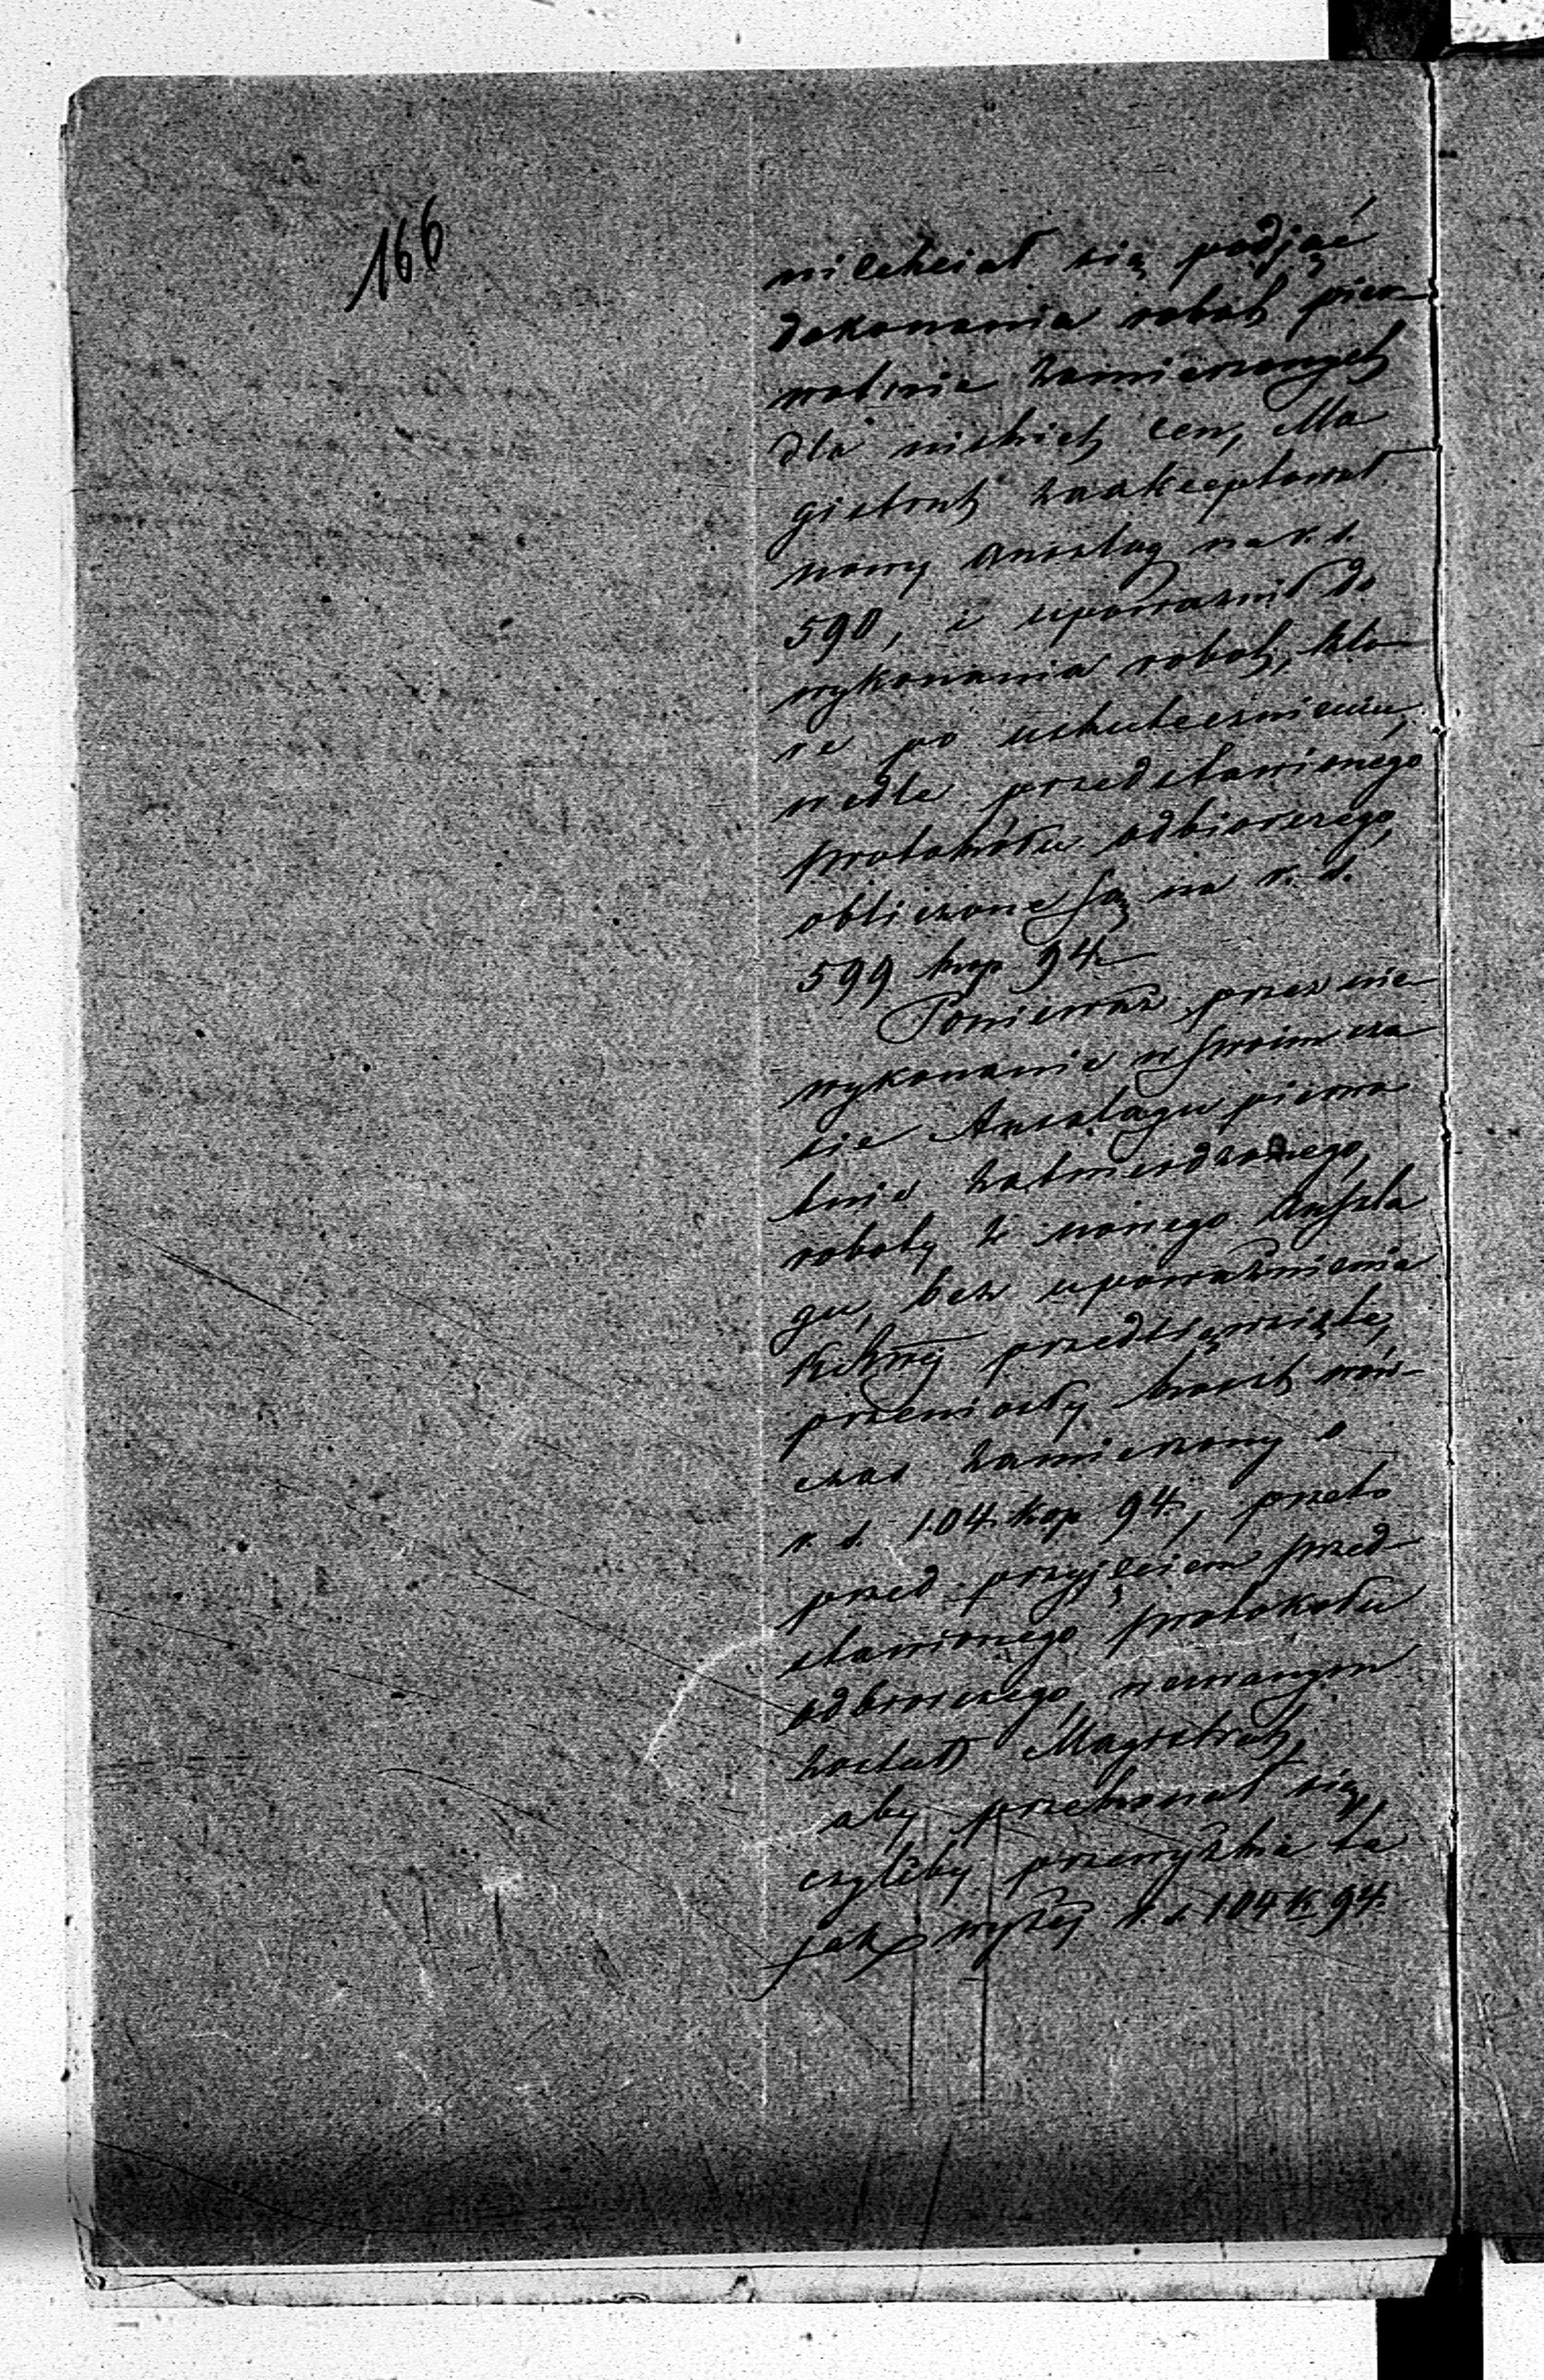 166
niechciał się podjąć
dokonania robót pier-
wotnie zamierzonych
dla niskich cen, Ma
gistrat zaakceptował
nowy Anszlag na r. s.
590, i upoważnił do
wykonania robót, któ-
re po uskutecznieniu,
wedle przedstawionego
protokółu odbiorczego,
obliczone są na r. s.
599 kop 94.
Ponieważ przez nie
wykonanie w swoim cza
sie Anszlagu pierwo
tnie zatwierdzonego,
roboty z nowego Anszla
gu, bez upoważnienia
przedsięwzięte,
przeniosły koszt wów-
czas zamierzony o
r. s. 104 kop 94., przeto
przed przyjęciem przed-
stawionego protokołu
odbiorczego, wezwanym
został Magistrat,
aby przekonał się,
czyliby przewyżka ta
jak wyżej r. s. 104 k. 94.